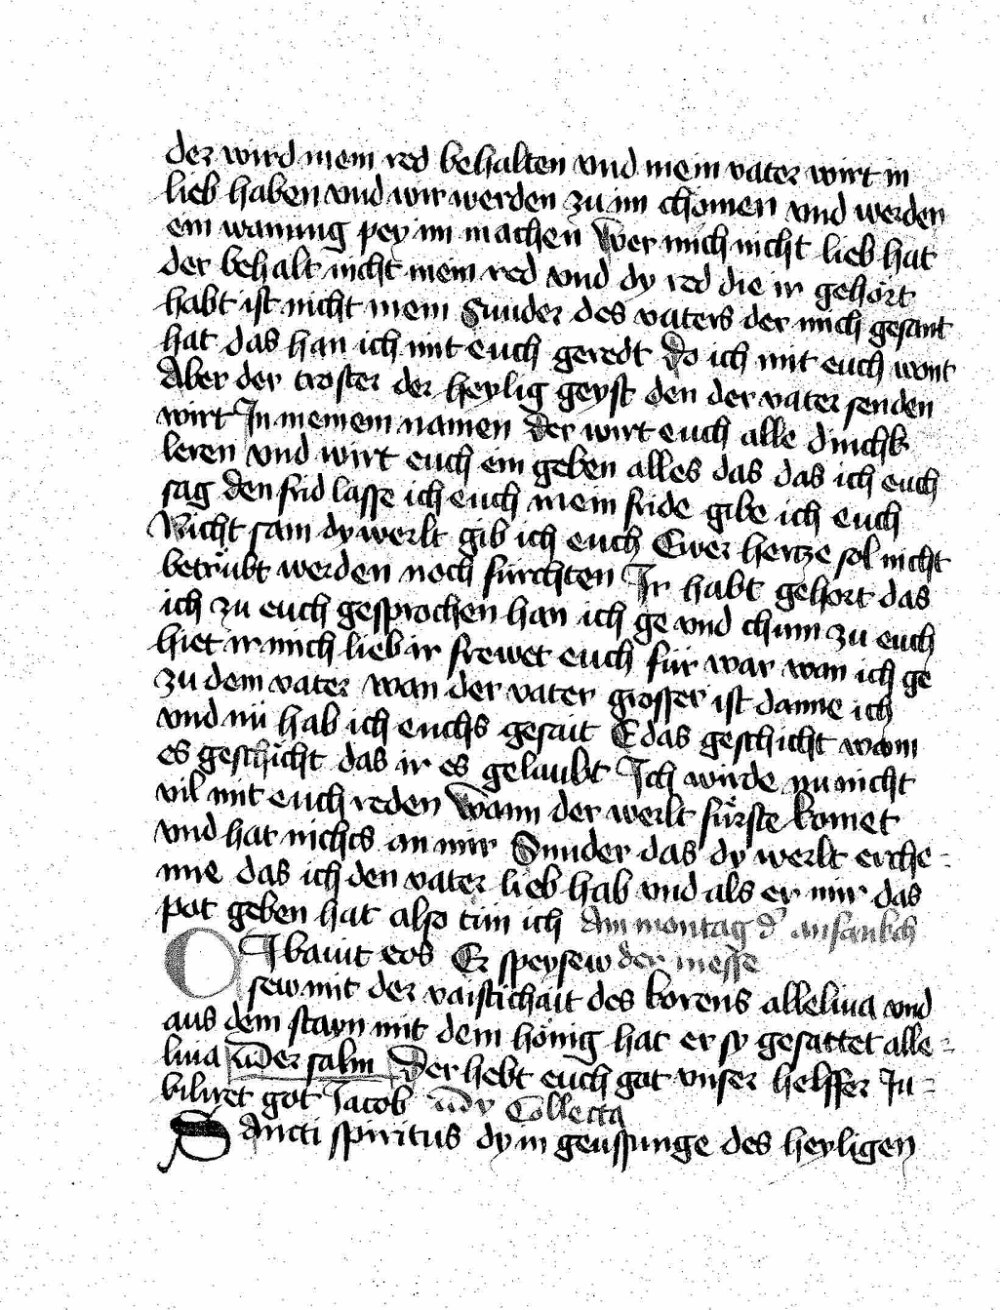 der wird mein red behalten vnd mein vater wirt in
lieb haben vnd wir werden zu im chömen vnd werden
ein wanung pey im machen Wer mich nicht lieb hat
der behalt nicht mein red vnd dy red die ir gehört
habt ist nicht mein Sunder des vaters der mich gesant
hat das han ich mit euch geredt do ich mit euch wont
Aber der troster der heylig geyst den der vater senden
wirt In meinem namen der wirt euch alle dinchk
leren vnd wirt euch ein geben alles das das ich euch
sag den frid lasse ich euch mein fride gibe ich euch
Nicht sam dy werlt gib ich euch Ewer hertze sol nicht
betrübt werden noch fürchten Ir habt gehort das
ich zu euch gesprochen han ich ge vnd chum zu euch
hiet ir mich lieb ir frewet euch für war wan ich ge
zu dem vater wan der vater grosser ist danne ich
vnd nü hab ich euchs gesait E das geschicht wann
es geschicht das ir es gelaubt Ich wirde nu nicht
vil mit euch reden Wann der werlt fürste komet
vnd hat nichts an mir Sunder das dy werlt erche=
nne das ich den vater lieb hab vnd als er mir das
pot geben hat also tün ich Am montag d'
CIbauit eos Er speysew der messe
sew mit der vaistichait des korens alleluia vnd
aus dem stayn mit dem hönig hat er sy gesattet alle=
luia der salm Der hebt euch got vnser helffer Iu=
biliret got Jacob Collecta
Sancti spiritus dy in geussunge des heyligen